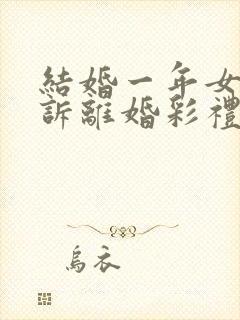 結婚一年女
訴離婚彩禮
烏衣